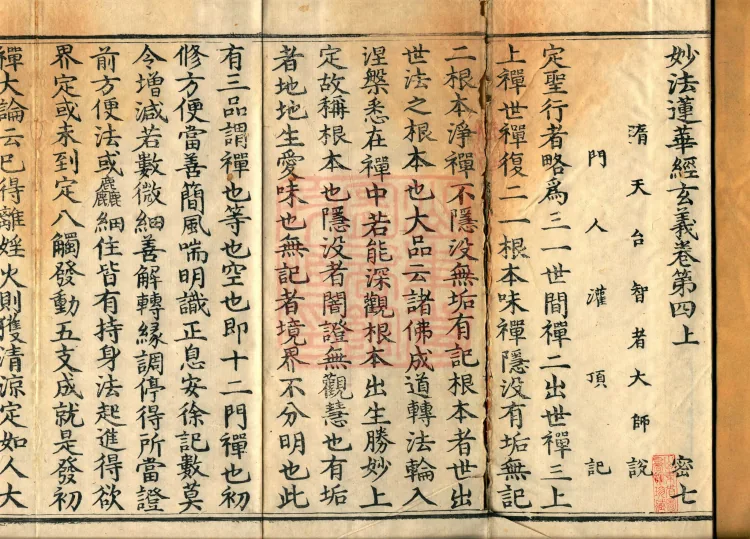 妙法蓮華經玄義卷第四上 密七
隋天台智者大師說
門人灌頂記
定聖行者略爲三一世間禪二出世禪三上
上禪世禪復二一根本味禪隱没有垢無記
二根本淨禪不隱没無垢有記根本者世出
世法之根本也大品云諸佛成道轉法輪入
涅槃悉在禪中若能深觀根本出生勝妙上
定故稱根本也隱没者闇證無觀慧也有垢
者地地生愛味也無記者境界不分明也此
有三品謂禪也等也空也即十二門禪也初
修方便當善簡風喘明識正息安徐記數莫
令增減若數微細善解轉緣調停得所當證
前方便法或麤細住皆有持身法起進得欲
界定或未到定八觸發動五支成就是發初
禪大論云已得離婬火則獲清涼定如人大